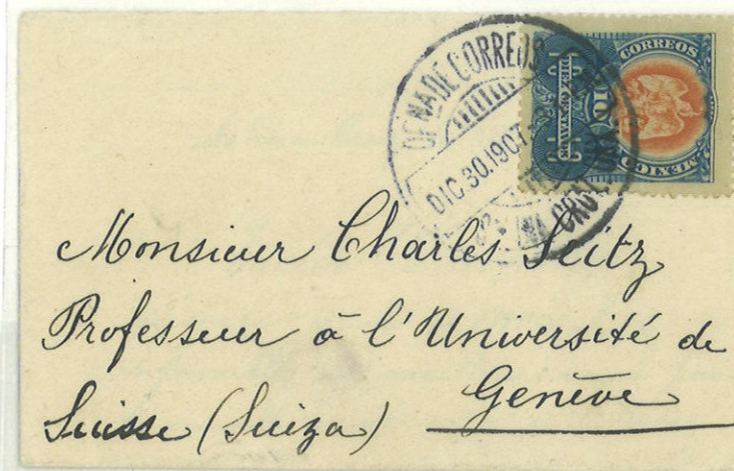 OFNA DE CORREOS
DIC.30.1903
CORREOS
DIEZ CENTAVOS
10
MEXICO
Monsieur Charles Seitz
Professeur à l'Université de
Genève
Suisse (Suiza)